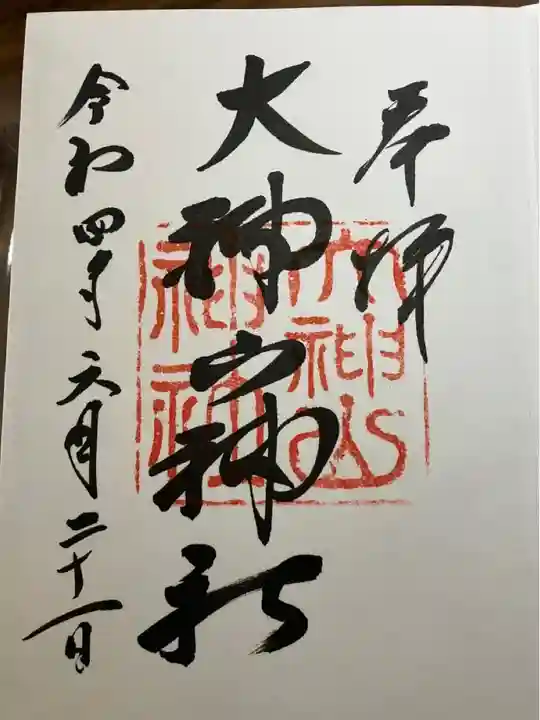 奉拝
大神山神社
大神山神社
令和四年六月二十一日